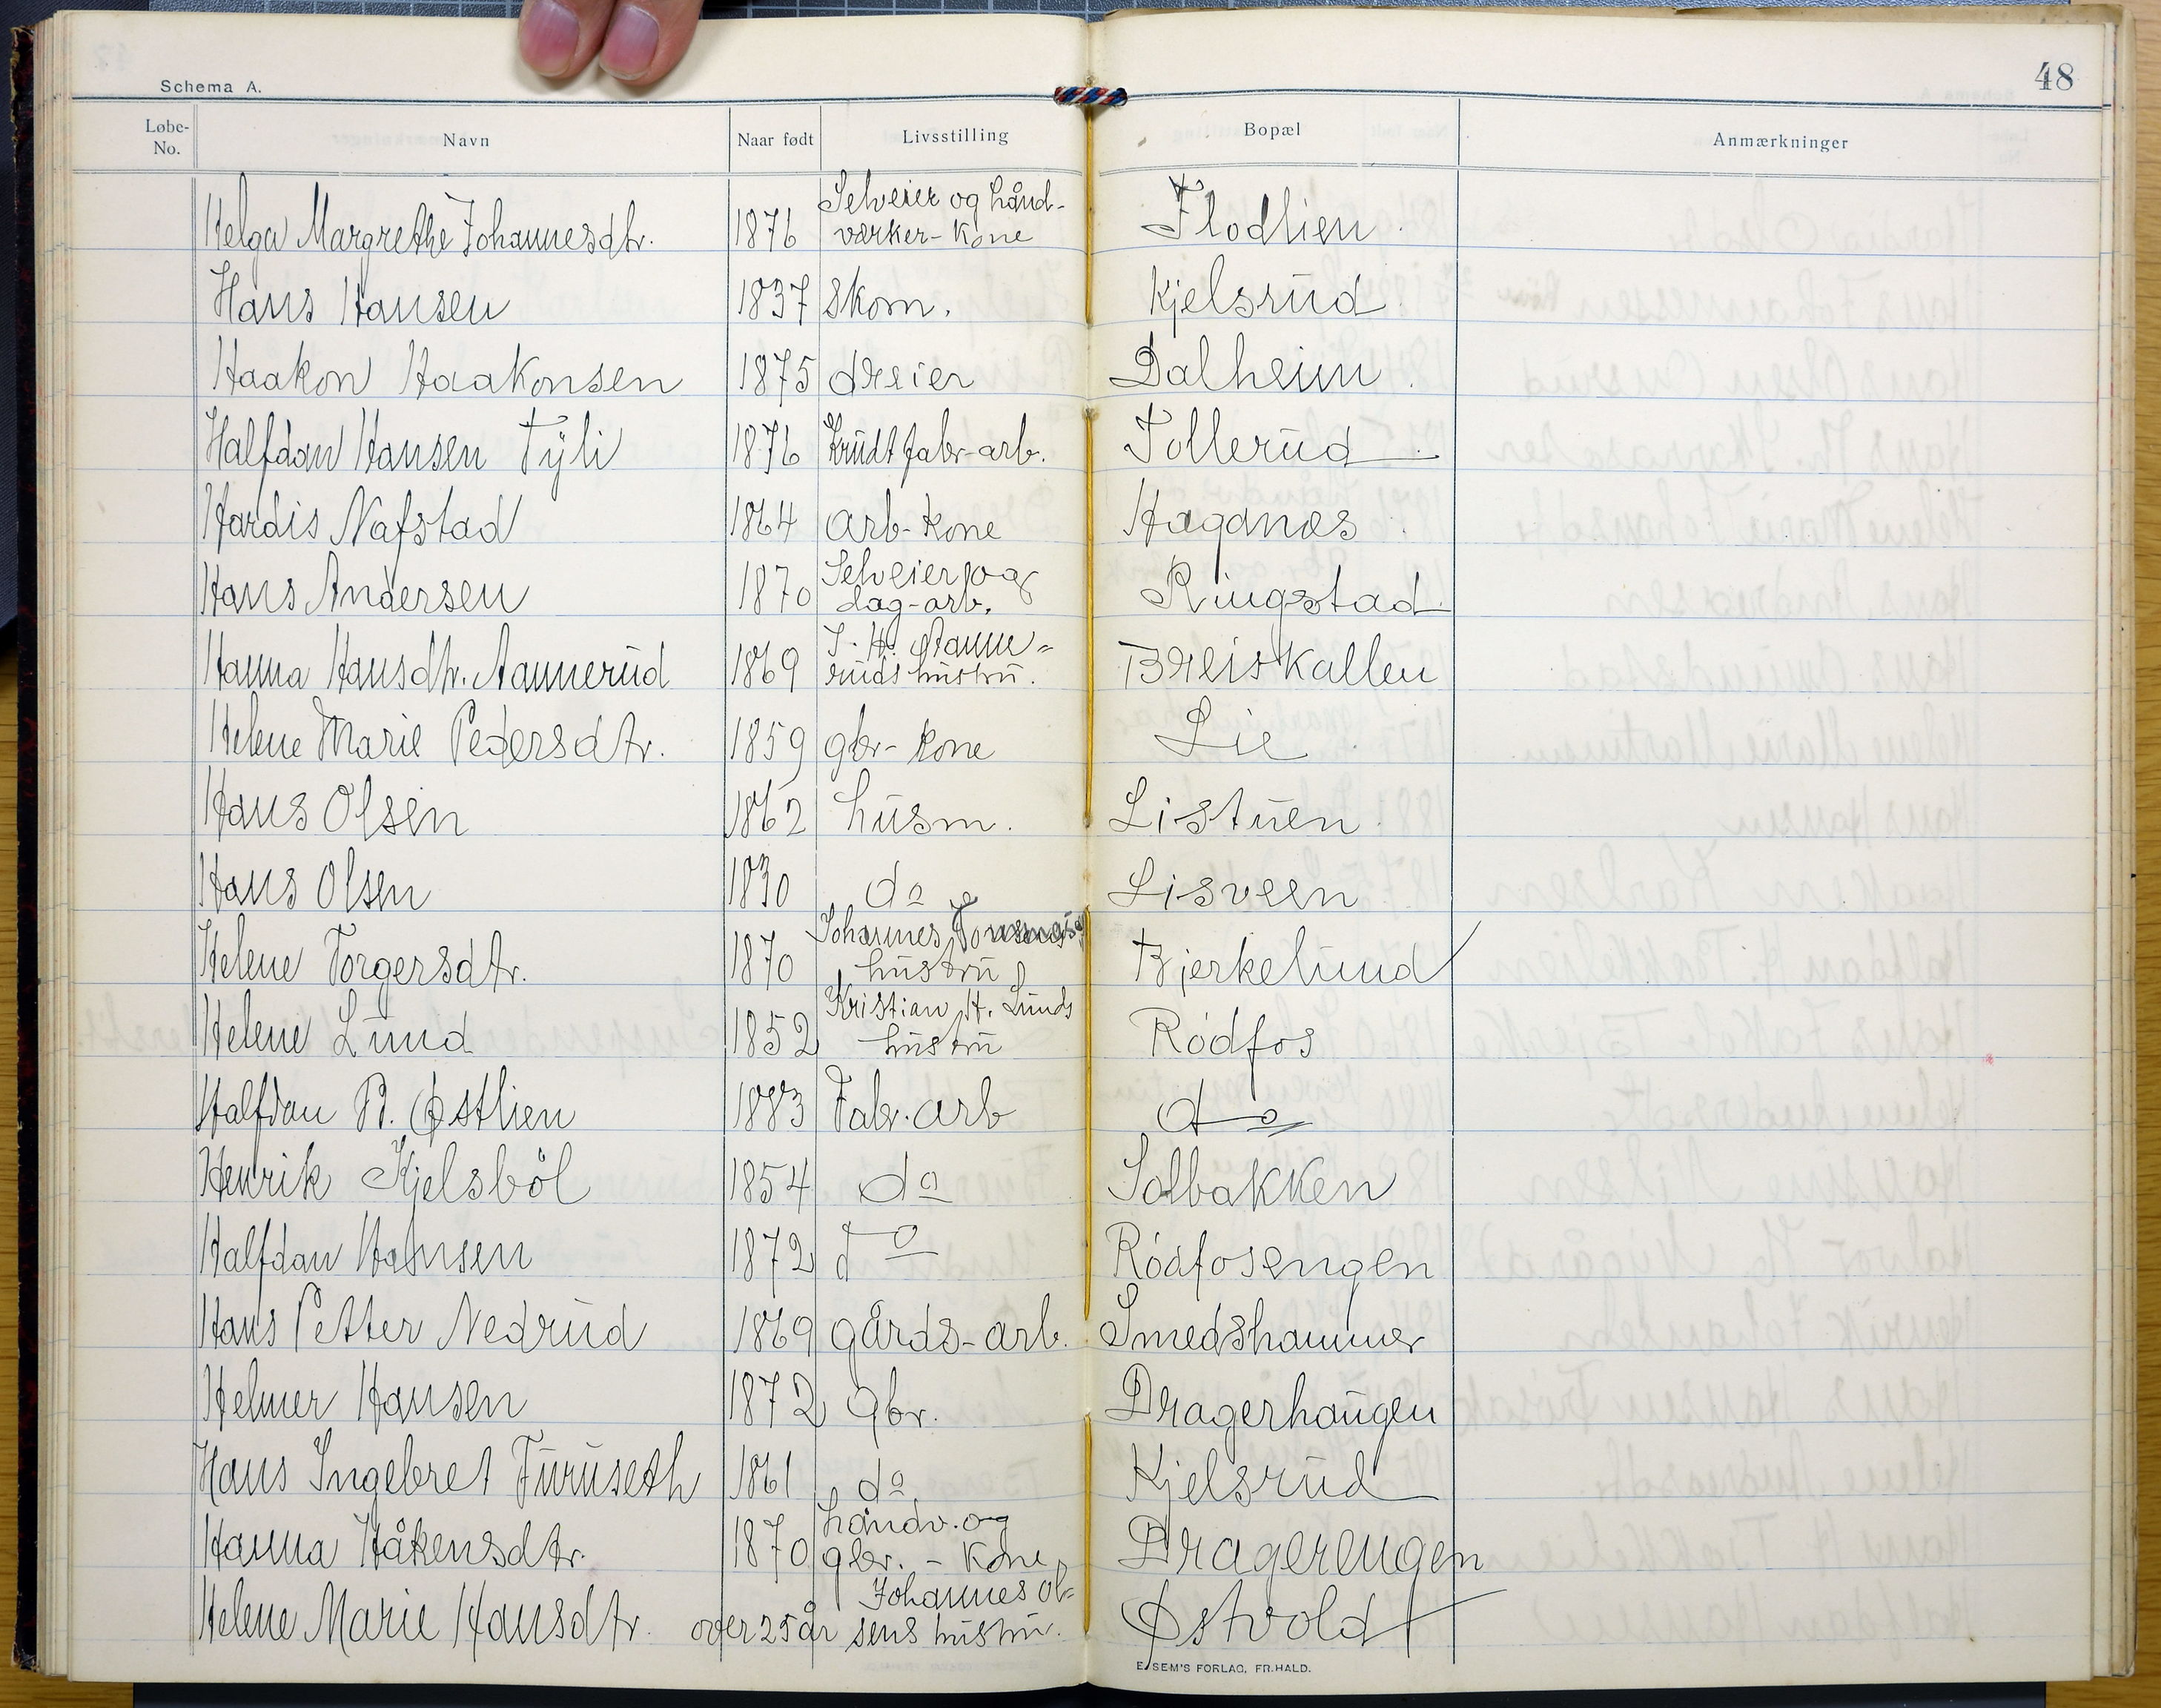 48
Schema A.
Løbe-No. Navn Naar født Livsstilling Bopæl Anmærkninger
Helga Margrethe Johannesdtr. 1876 Selveier og håndværker-kone Flodlien
Hans Hansen 1837 Skom. Kjelsrud
Haakon Haakonsen 1875 dreier Dalheim
Halfdan Hansen Tyli 1876 Krudtfabr-arb. Tollerud
Hardis Nafstad 1864 arb-kone Haganes
Hans Andersen 1870 Selveier og dag-arb. Ringstad
Hanna Hansdtr. Aannerud 1869 J. H. Aannerudshustru. Breiskallen
Helene Marie Pedersdtr. 1859 gbr-kone Lie
Hans Olsen 1862 husm. Listuen
Hans Olsen 1830 do Lisveen
Helene Torgersdtr. 1870 Johannes hustru Bjerkelund
Helene Lund 1852 Kristian H. Lunds hustru Rødfos
Halfdan B. Østlien 1883 Fabr. arb do
Henrik Kjelsbøl 1854 do Solbakken
Halfdan Hansen 1872 do Rødfosengen
Hans Petter Nedrud 1869 gårds-arb. Smedshammer
Helmer Hansen 1872 gbr. Dragerhaugen
Hans Ingebret Furuseth 1861 do Kjelsrud
Hanna Håkensdtr. 1870 håndv. og gbr.-kone Dragerengen
Helene Marie Hansdtr. over 25 år Johannes Olsens hustru. Østvold
E. SEM'S FORLAG, FR.HALD.